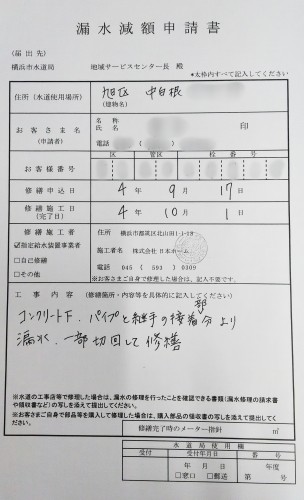 漏水減額申請書
(届出先)
横浜市水道局 地域サービスセンター長 殿
*太枠内すべて記入してください
住所（水道使用場所） 旭区 中白根
(建物名)
お客さま名 氏名 印
(申請者) 電話 ( )
お客様番号 区 管区 栓番号
修繕申込日 4 年 9 月 17 日
修繕施工日 4 年 10 月 1 日
(完了日)
修繕施工者 住所 横浜市都筑区北山田1-1-18
☑指定給水装置事業者 施工者名 株式会社 日本ホーム
□自己修繕 電話 045 ( 593 ) 0369
□その他 *お客さまが修繕した場合は、記入不要です。
工事内容 (修繕箇所・内容等を具体的に記入してください)
コンクリート下、パイプと継手の接着部分より
漏水、一部切回して修繕
※水道の工事店等で修理した場合は、漏水の修理を行ったことを確認できる書類（漏水修理の請求書
や領収書など）の写しを添えて提出してください。
※お客さまご自身で部品等を購入して修理した場合は、購入部品の領収書の写しを添えて提出してください。
修繕完了時のメーター指針 ㎥
水道局使用欄
受付 受付年月日 番号
年 月 日 年度
□窓口 □郵送 第 号